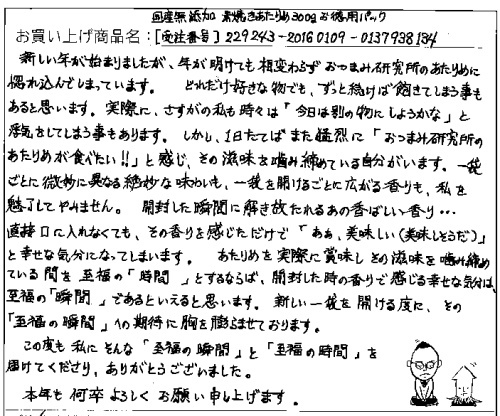 国産無添加 素焼きあたりめ300gお徳用パック
お買い上げ商品名：[受注番号] 229243-20160109-0137938134
新しい年が始まりましたが、年が明けても相変わらずおつまみ研究所のあたりめに
惚れ込んでしまっています。 どれだけ好きな物でも、ずっと続けば飽きてしまう事も
あると思います。実際に、さすがの私も時々は「今日は別の物にしようかな」と
浮気をしてしまう事もあります。しかし、1日たてばまた猛烈に「おつまみ研究所の
あたりめが食べたい!!」と感じ、その滋味を噛み締めている自分がいます。一袋
ごとに微妙に異なる絶妙な味わいも、一袋を開けるごとに広がる香りも、私を
魅了してやみません。 開封した瞬間に解き放たれるあの香ばしい香り…
直接口に入れなくても、その香りを感じただけで「ああ、美味しい(美味しそうだ)」
と幸せな気分になってしまいます。 あたりめを実際に賞味しその滋味を噛み締め
ている間を至福の「時間」とするならば、開封した時の香りで感じる幸せな気分は、
至福の「瞬間」であるといえると思います。新しい一袋を開ける度に、その
「至福の瞬間」への期待に胸を膨らませております。
この度も私にそんな「至福の瞬間」と「至福の時間」を
届けてくださり、ありがとうございました。
本年も何卒よろしくお願い申し上げます。